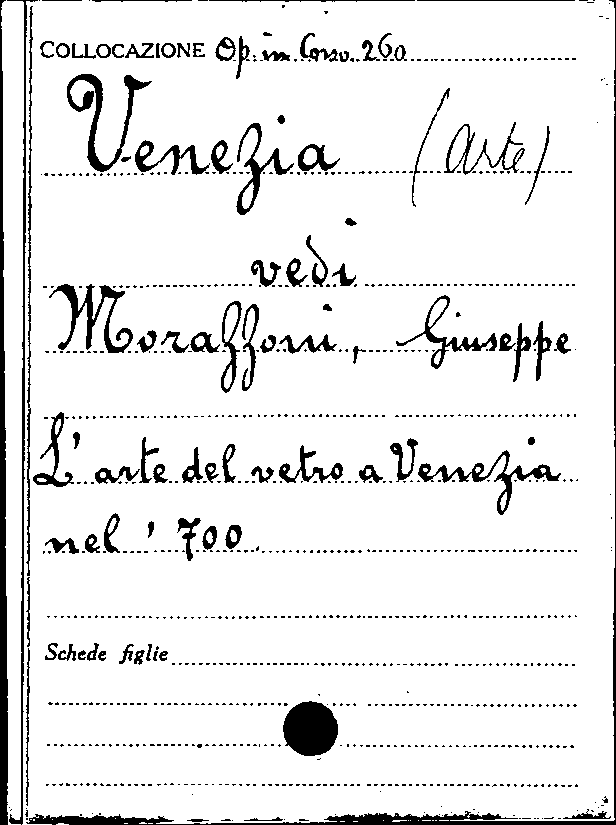 COLLOCAZIONE Op. in Corso. 260
Venezia (arte)
vedi
Morazzoni, Giuseppe
L'arte del vetro a Venezia
nel '700.
Schede figlie